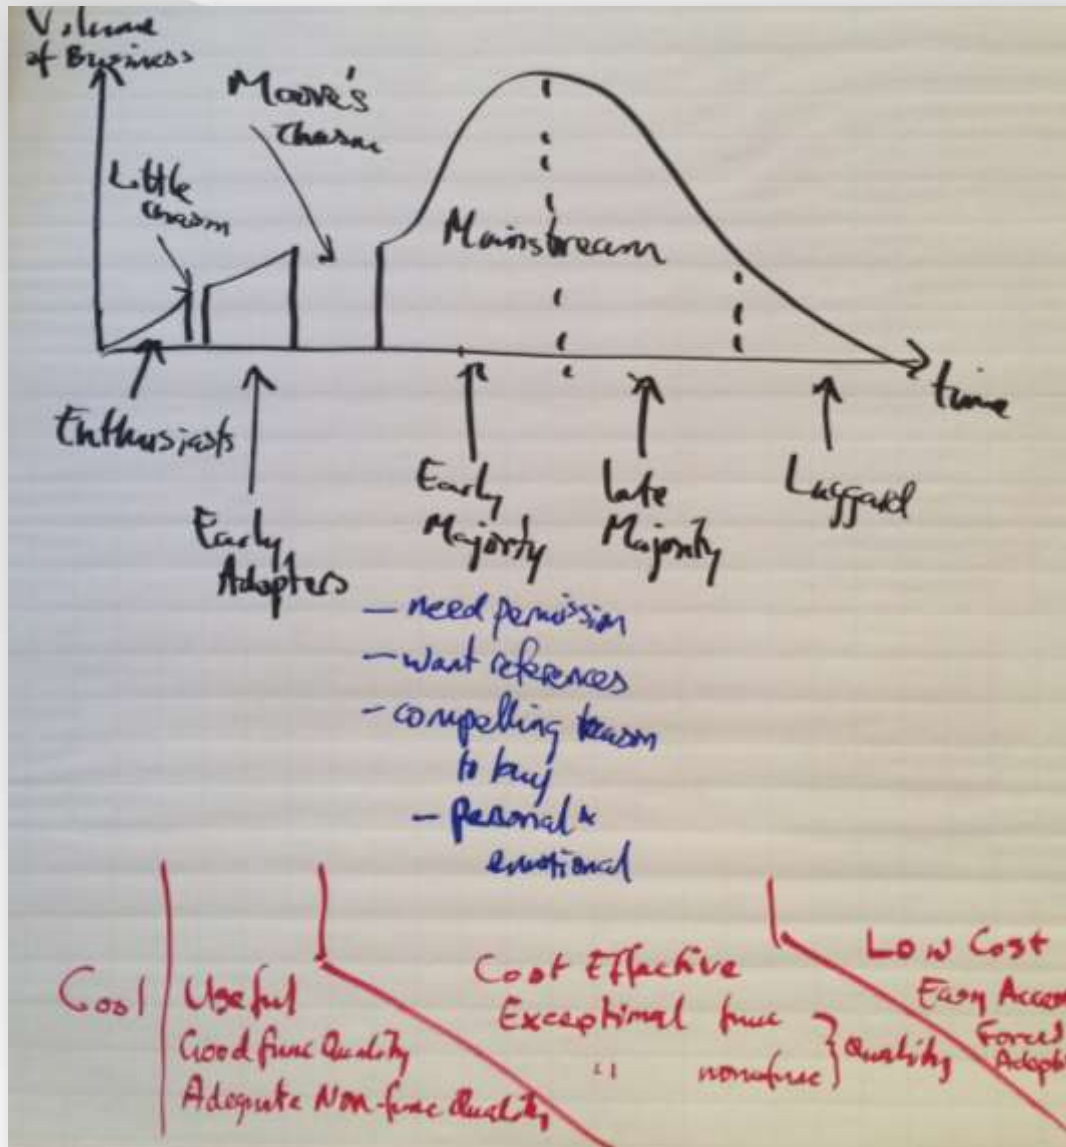 Volume
of Business
Moore's
chasm
Little
chasm
Mainstream
time
Enthusiasts
Early
Adopters
Early
Majority
Late
Majority
Laggard
- need permission
- want references
- compelling reason
to buy
- personal &
emotional
Cool
Useful
Good func Quality
Adequate Non-func Quality
Cost Effective
Exceptional func
" nonfunc
} Quality
Low Cost
Easy Access
Forced
Adopti